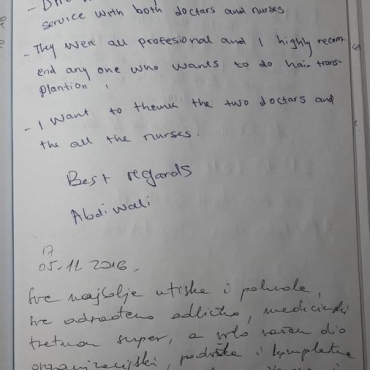 service with both doctors and nurses.
- They were all profesional and I highly recom
end any one who wants to do hair trans-
plantion!
- I want to thenk the two doctors and
the all the nurses.
Best regards
Abdiwali
17
05.11.2016.
Sve najbolje utiske i pohvale,
sve odrađeno odlično, medicinski
tretman super, a vrlo važan dio
organizacijski, podrška i kompletna